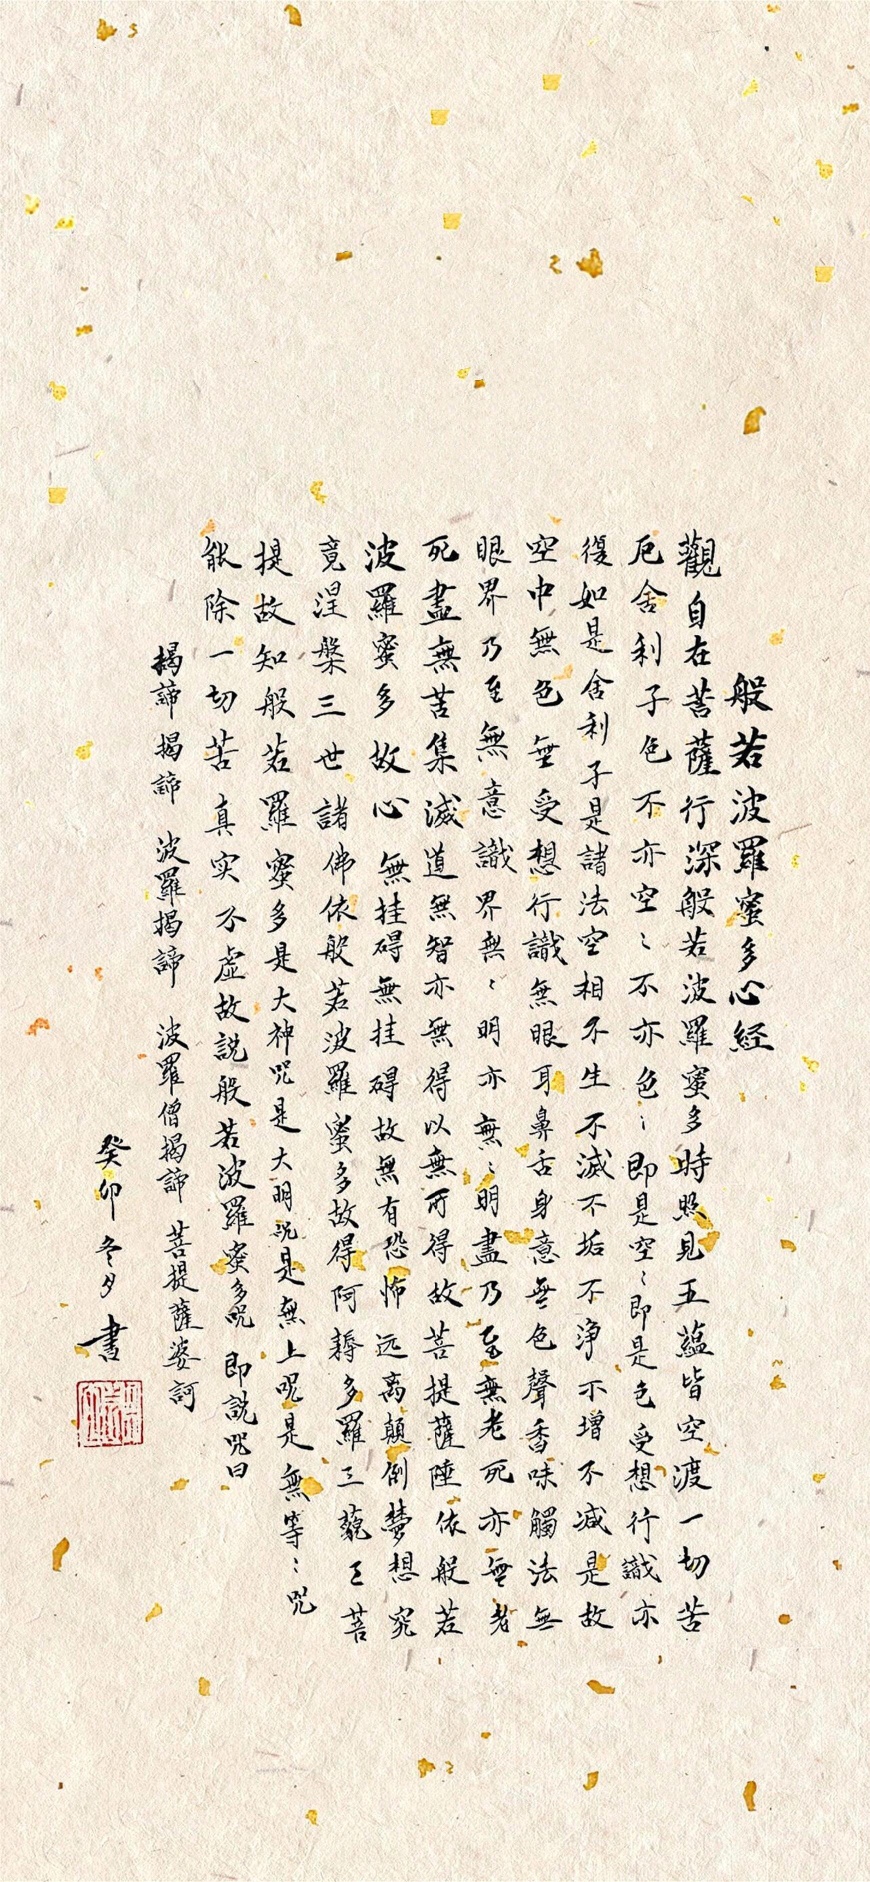 般若波羅蜜多心経
觀自在菩薩行深般若波羅蜜多時照見五蘊皆空渡一切苦
厄舍利子色不亦空〻不亦色〻即是空〻即是色受想行識亦
復如是舍利子是諸法空相不生不滅不垢不浄不增不减是故
空中無色無受想行識無眼耳鼻舌身意無色聲香味觸法無
眼界乃至無意識界無〻明亦無〻明盡乃至無老死亦無老
死盡無苦集滅道無智亦無得以無所得故菩提薩陲依般若
波羅蜜多故心無挂碍無挂碍故無有恐怖远离顛倒夢想究
竟涅槃三世諸佛依般若波羅蜜多故得阿耨多羅三藐三菩
提故知般若羅蜜多是大神咒是大明咒是無上咒是無等〻咒
能除一切苦真实不虚故説般若波羅蜜多咒即説咒曰
揭諦揭諦 波羅揭諦 波羅僧揭諦 菩提薩婆訶
癸卯冬夕書